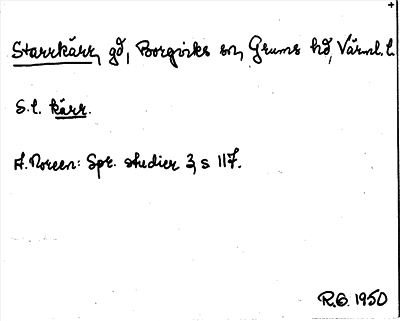 Starrkärr, gd, Borgviks sn, Grums hd, Värml. l.
S.l. kärr.
A. Noreen: Spr. studier 3, s 117.
R.G. 1950